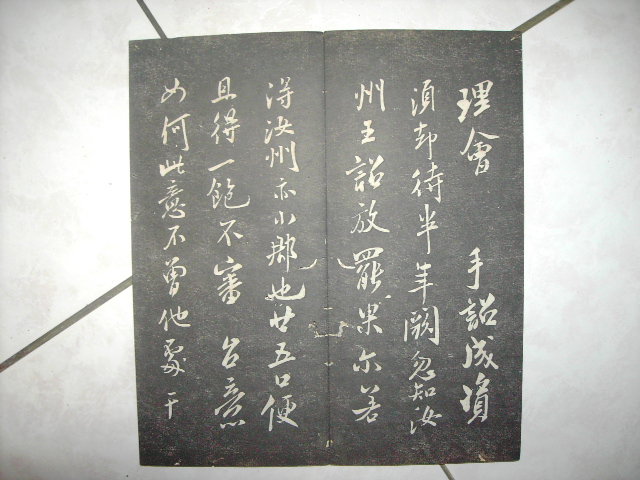 理會 手詔成資
須却待半年闕忽知汝
州王詔放罷果尔若
得汝州亦小郡也廿五口便
且得一飽不審 台意
如何此意不曾他處干